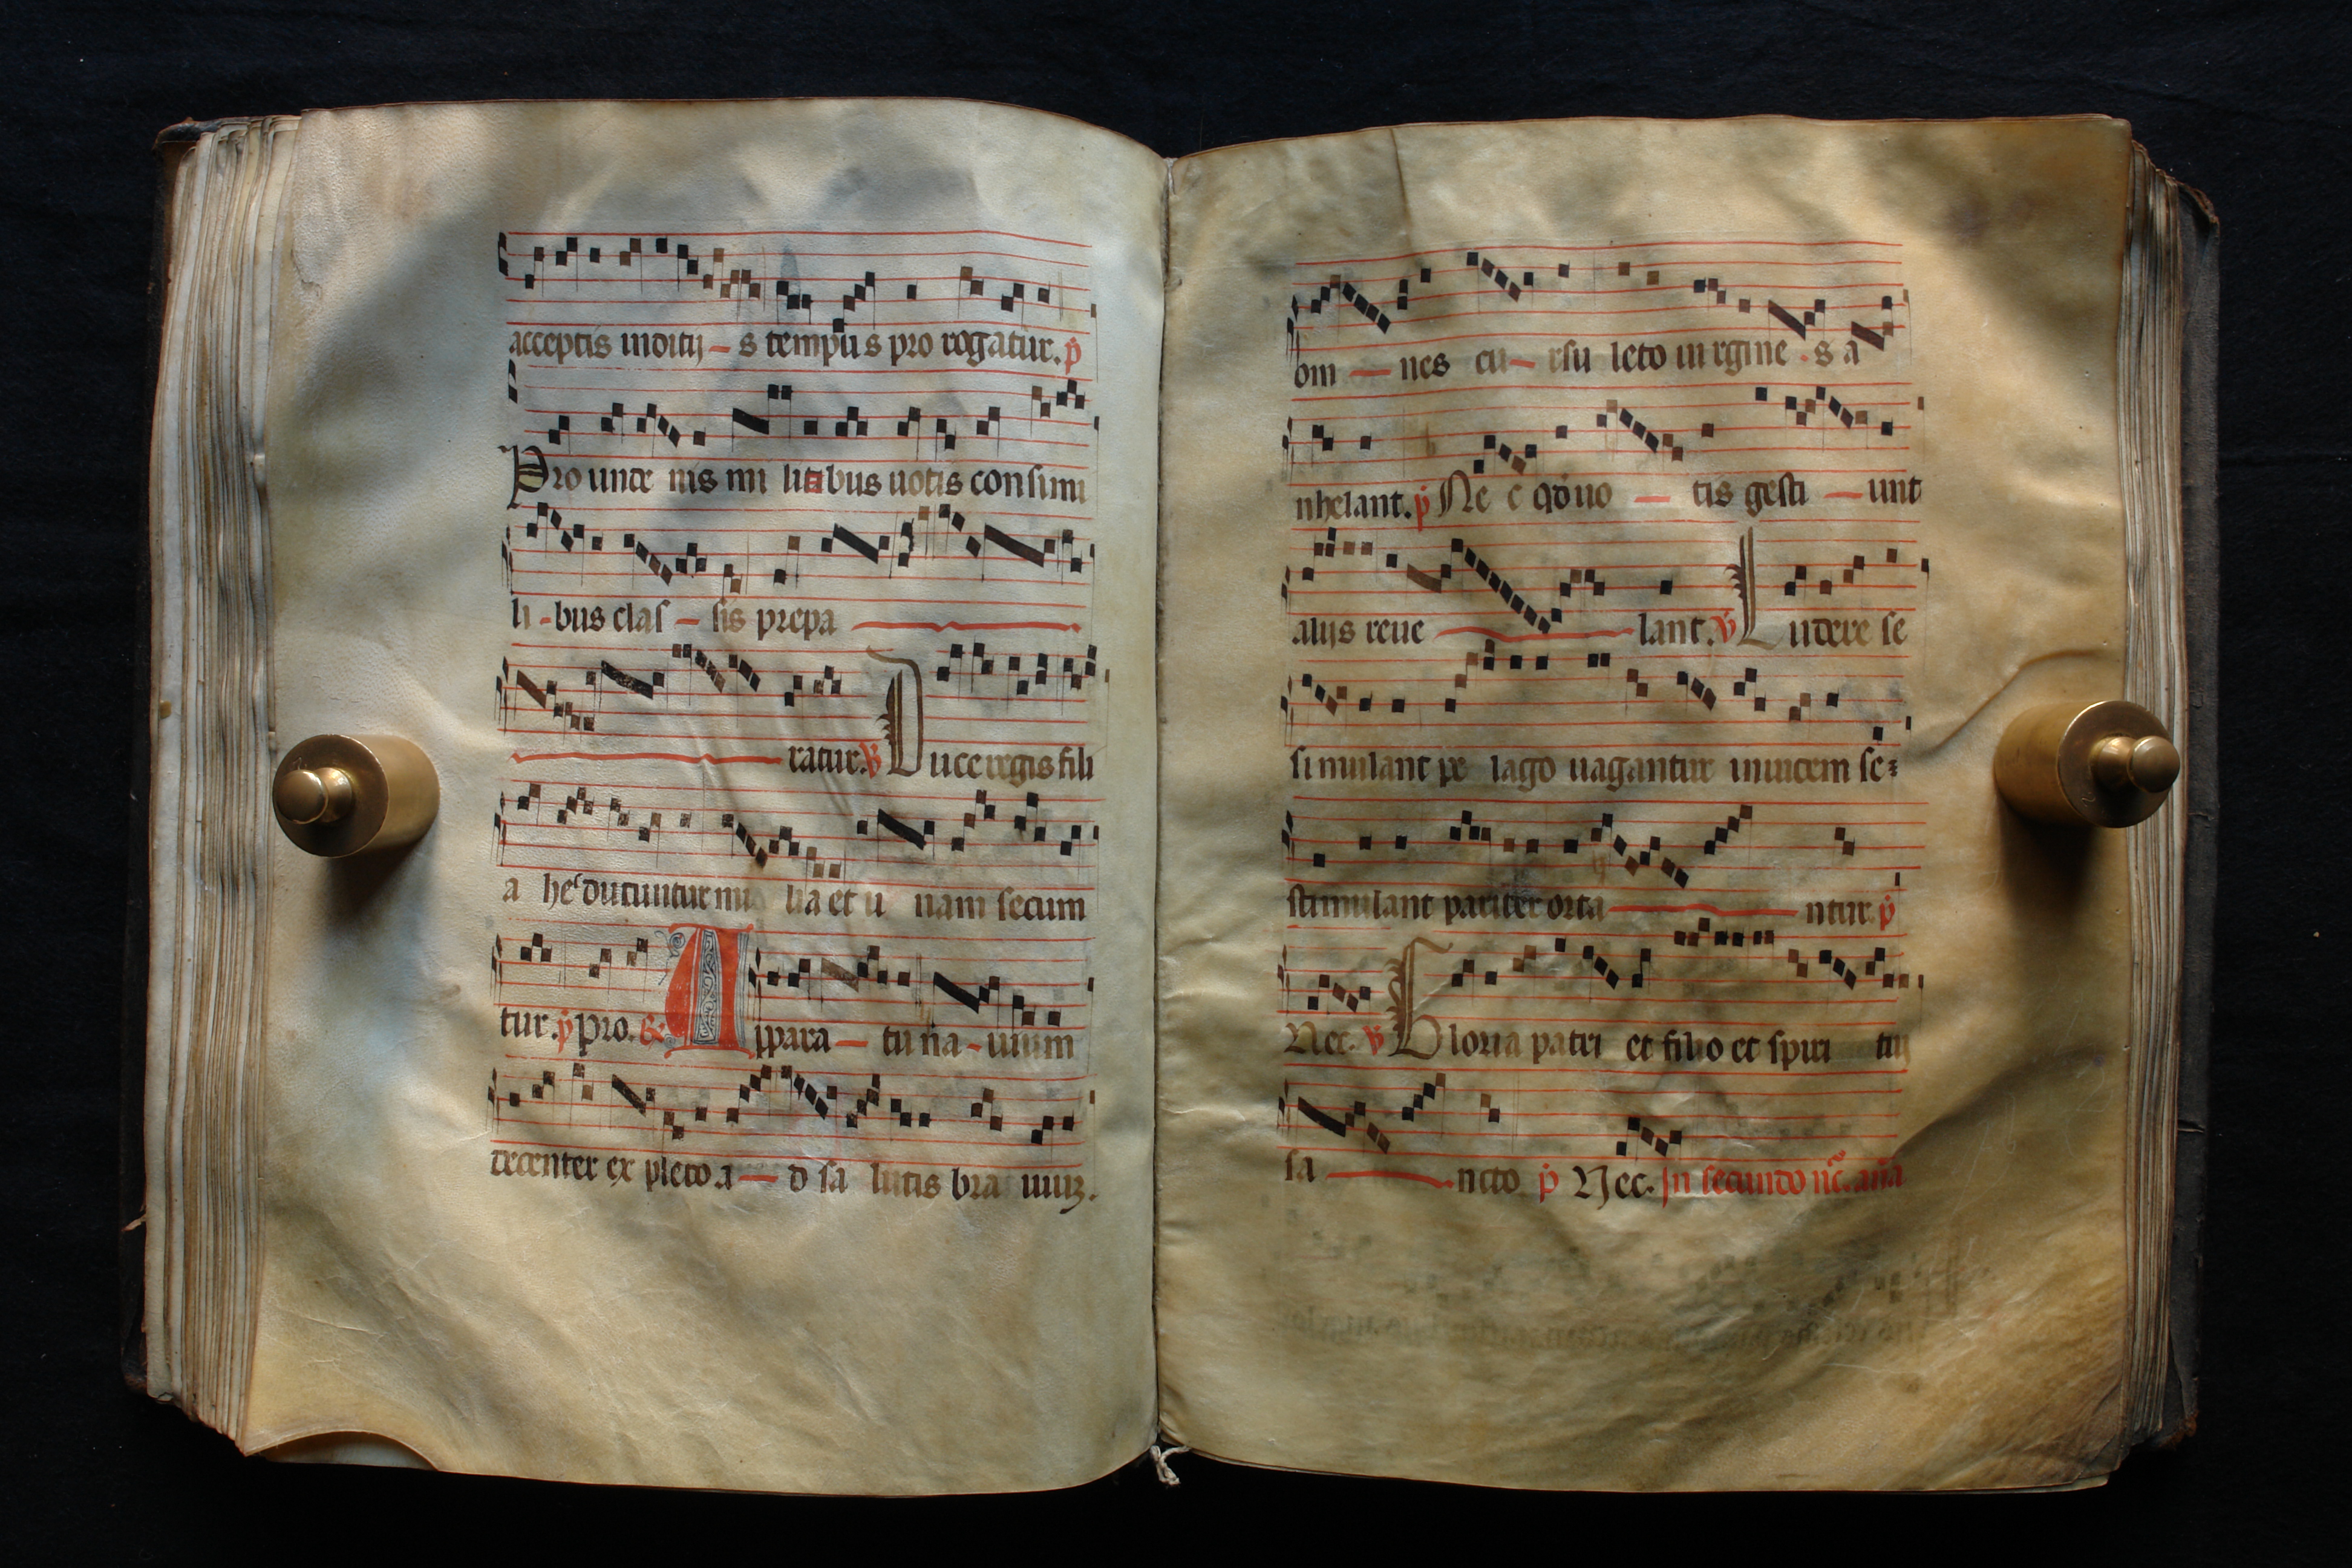 acceptis inditij – s tempus pro rogatur. p
Pro unde nis mi litibus uotis consimi
li - bus clas – sis prepa
ratur. V Duce regis fili
a he ducuntur mi lia et u nam secum
tur. p pro. R Apara – tu na - uium
decenter ex pleto a – d sa lutis bra uiuz.
om – nes cu – rsu leto uirgine . s a
nhelant. p Ne c qd uo – tis gesti – unt
alijs reue lant. V Ludere se
simulant pe lago uagantur inuicem se
stimulant pariter orta ntur. p
Nec. V Gloria patri et filio et spiri tui
sa ncto p Nec. In secundo nc. ana